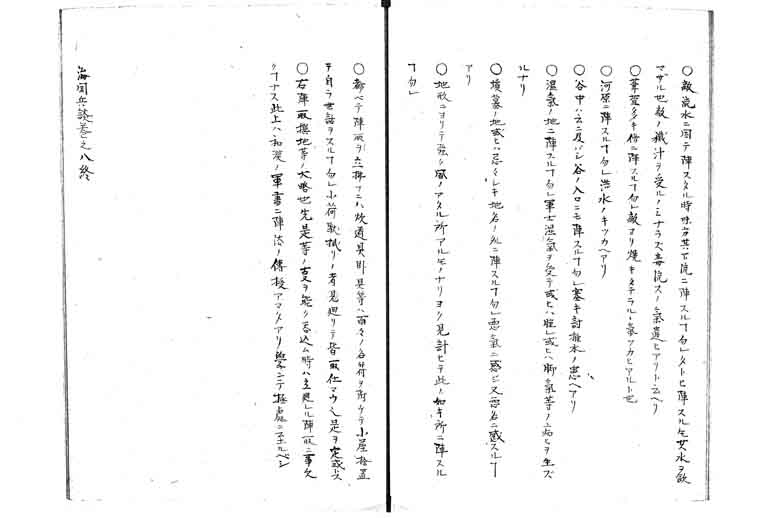 ○敵流水ニ因テ陣スル時味方其下流ニ陣スル丁勿レタトヒ陣スル𪜈其水ヲ飲
マザル也敵ノ穢汁ヲ受ルノミナラズ毒流スノ氣遣ヒアリト云ヘリ
○葦萱多キ傍ニ陣スル丁勿レ敵ヨリ焼キタテラルヽ氣ツカヒアルト也
○河原ニ陣スル丁勿レ洪水ノキツカヘアリ
○谷中ハ云ニ及バズ谷ノ入口ニモ陣スル丁勿レ塞キ討推水ノ患ヘアリ
○湿氣ノ地ニ陣スル丁勿レ軍士湿氣ヲ受テ或ハ腫レ或ハ脚氣等ノ病ヒヲ生ズ
ルナリ
○墳墓ノ地或ハ忌々レキ地名ノ処ニ陣スル丁勿レ悪氣ニ感ジ又悪名ニ感スル丁
アリ
○地形ニヨリテ強ク風ノアタル所アルモノナリヨク見計ヒテ此ノ如キ所ニ陣スル
丁勿レ
○都ベテ陣取ヲ立拂フニハ炊道具馬具等ハ面々ノ名符ヲ附ケテ小屋捨置
ヲ自ラ世話ヲスル丁勿レ小荷駄拭リノ者見廻リテ皆取仕マウ之是ヲ定或ス
○右陣取撰地等ノ大略也先是等ノ支ヲ能ク呑込ム時ハ主用ル陣取ニ事欠
ケナス此上ハ和漢ノ軍書ニ陣法ノ傳授アマタアリ學ンテ極處ニ至ルベシ
海国兵談巻之八終